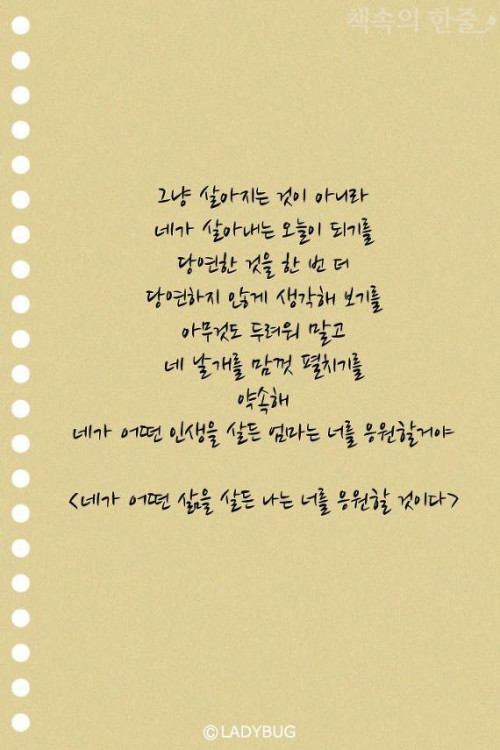 책속의 한줄
그냥 살아지는 것이 아니라
네가 살아내는 오늘이 되기를
당연한 것을 한 번 더
당연하지 않게 생각해 보기를
아무것도 두려워 말고
네 날개를 맘껏 펼치기를
약속해
네가 어떤 인생을 살든 엄마는 너를 응원할거야
<네가 어떤 삶을 살든 나는 너를 응원할 것이다>
©LADYBUG